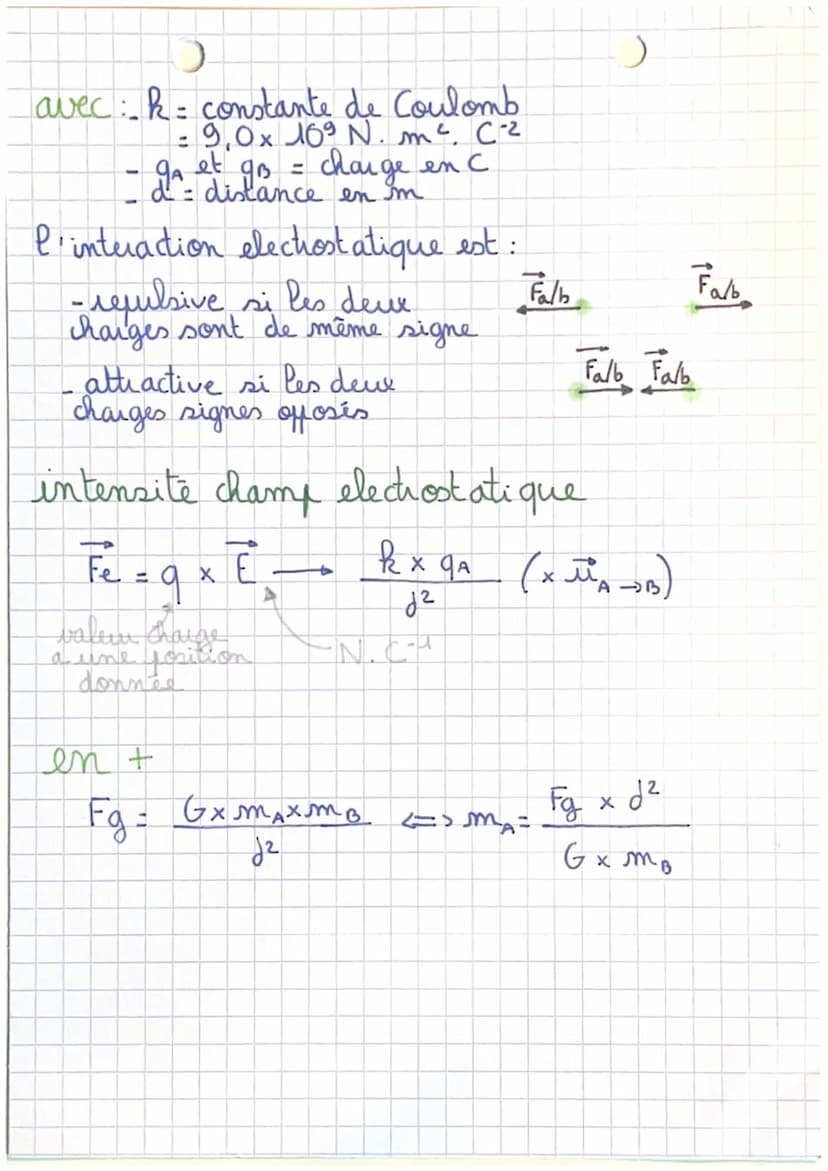 avec :- k = constante de Coulomb
= 9,0 x 10⁹ N. m². C⁻²
- qA et qB = charge en C
- d = distance en m
l'interaction electrostatique est :
- repulsive si les deux
charges sont de même signe
Fa/b Fa/b
- attractive si les deux
charges signes opposés
Fa/b Fa/b
intensité champ electrostatique
Fe = q x E → k x qA / d² (x u A→B)
valeur charge
a une position
donnée
N. C⁻¹
en +
Fg = G x mA x mB / d² <=> mA = Fg x d² / G x mB